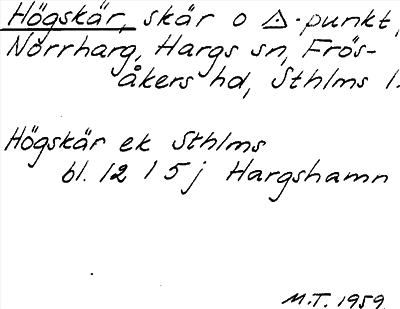 Högskär, skär o △-punkt,
Norrharg, Hargs sn, Frös-
åkers hd, Sthlms l.
Högskär ek Sthlms
bl. 12 I 5 j Hargshamn
M.T. 1959